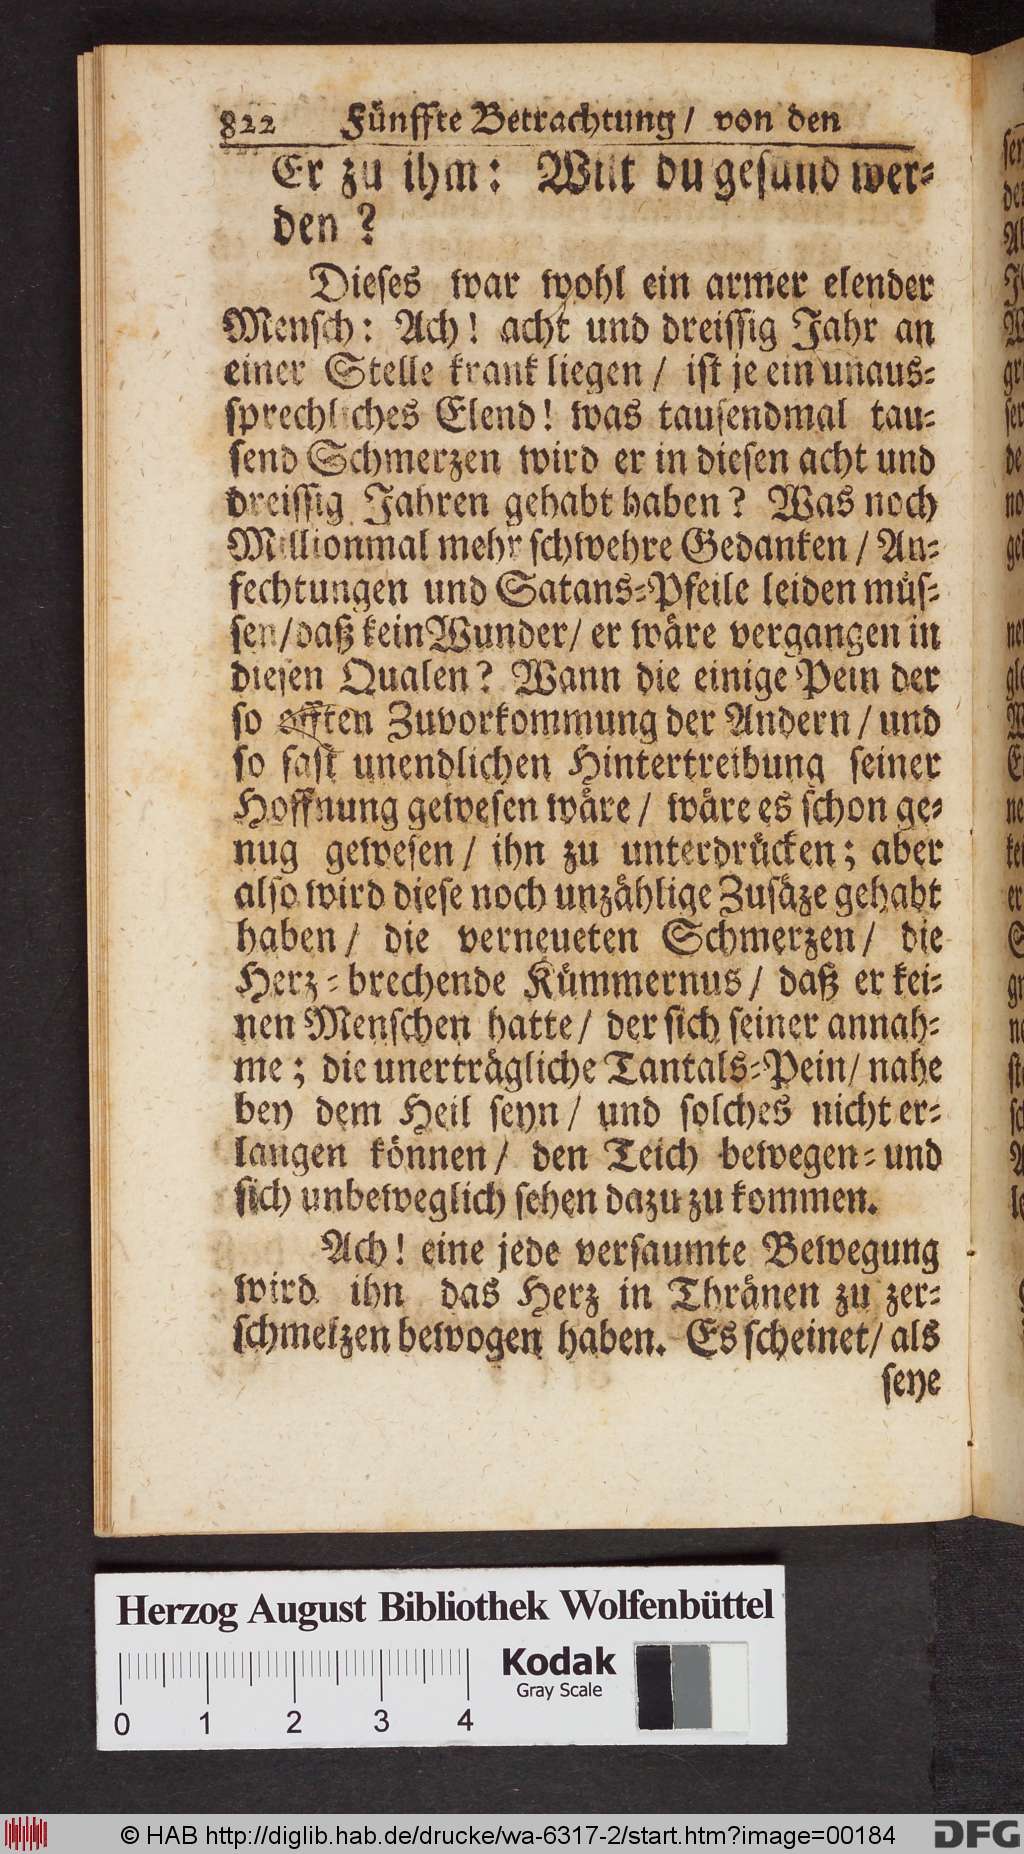 822 Fünffte Betrachtung/ von den
Er zu ihm: Wilt du gesund wer-
den?
Dieses war wohl ein armer elender
Mensch: Ach! acht und dreissig Jahr an
einer Stelle krank liegen/ ist je ein unaus-
sprechliches Elend! was tausendmal tau-
send Schmerzen wird er in diesen acht und
dreissig Jahren gehabt haben? Was noch
Millionmal mehr schwehre Gedanken/ An-
fechtungen und Satans-Pfeile leiden müs-
sen/daß kein Wunder/ er wäre vergangen in
diesen Qualen? Wann die einige Pein der
so offten Zuvorkommung der Andern/ und
so fast unendlichen Hintertreibung seiner
Hoffnung gewesen wäre/ wäre es schon ge-
nug gewesen/ ihn zu unterdrücken; aber
also wird diese noch unzählige Zusäze gehabt
haben/ die verneueten Schmerzen/ die
Herz-brechende Kümmernus/ daß er kei-
nen Menschen hatte/ der sich seiner annah-
me; die unerträgliche Tantals-Pein/ nahe
bey dem Heil seyn/ und solches nicht er-
langen können/ den Teich bewegen- und
sich unbeweglich sehen dazu zu kommen.
Ach! eine jede versaumte Bewegung
wird ihn das Herz in Thränen zu zer-
schmelzen bewogen haben. Es scheinet/ als
seye
Herzog August Bibliothek Wolfenbüttel
Kodak
Gray Scale
0 1 2 3 4
© HAB http://diglib.hab.de/drucke/wa-6317-2/start.htm?image=00184
DFG